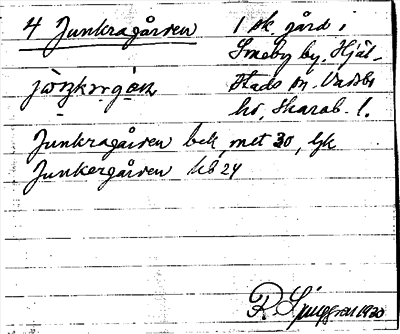 4 Junkragården 1 sk. gård i
Smeby by, Hjäl-
stads sn. Vadsbo
hd, Skarab. l.
Junkragården bek, met 30, ljk
Junkergården kb 24
R. Ljunggren 1930